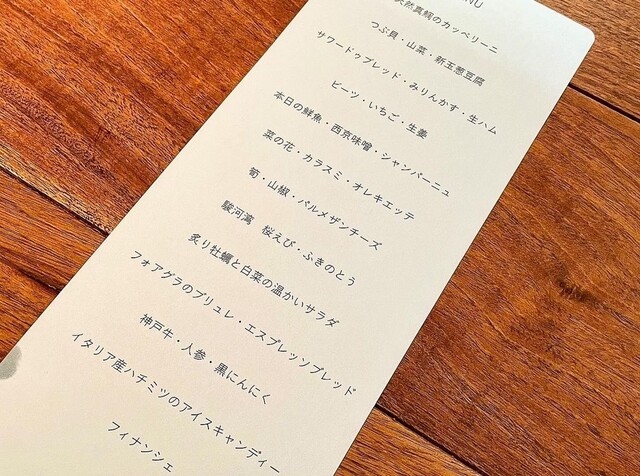 NU
天然真鯛のカッペリーニ
つぶ貝・山菜・新玉葱豆腐
サワードゥブレッド・みりんかす・生ハム
ビーツ・いちご・生姜
本日の鮮魚・西京味噌・シャンパーニュ
菜の花・カラスミ・オレキエッテ
筍・山椒・パルメザンチーズ
駿河湾 桜えび・ふきのとう
炙り牡蠣と白菜の温かいサラダ
フォアグラのブリュレ・エスプレッソブレッド
神戸牛・人参・黒にんにく
イタリア産ハチミツのアイスキャンディー
フィナンシェ